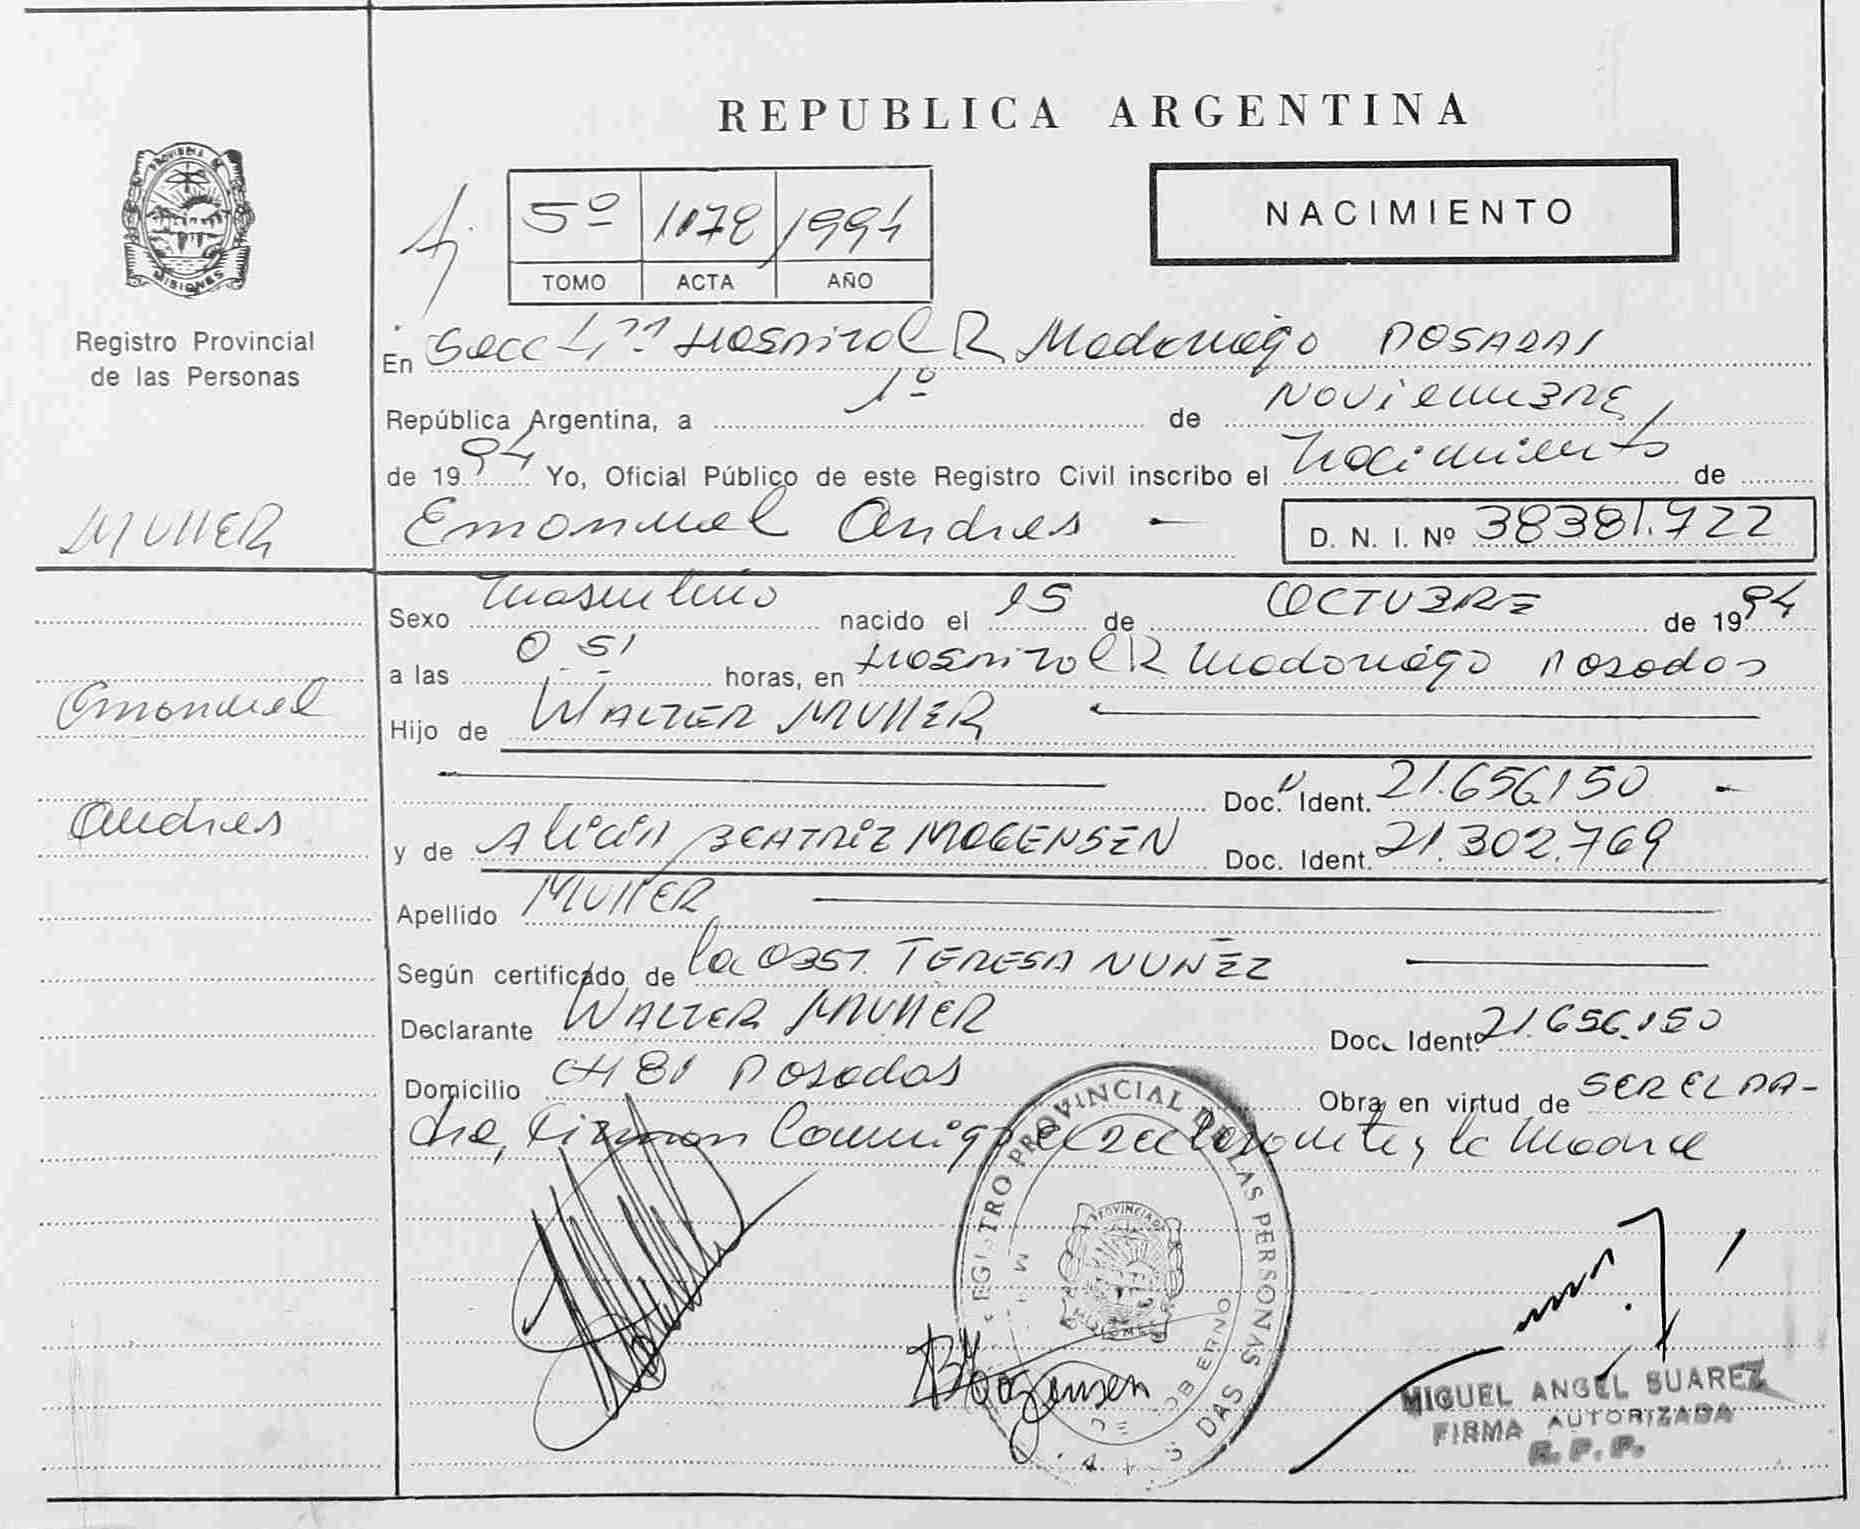 REPUBLICA ARGENTINA
PROVINCIA DE
MISIONES
Registro Provincial
de las Personas
5º 1178 1994
TOMO ACTA AÑO
NACIMIENTO
En Secc 4ª Hospital R Madariaga POSADAS
República Argentina, a 1º de NOVIEMBRE
de 1994 Yo, Oficial Público de este Registro Civil inscribo el Nacimiento de
MULLER
Emanuel Andres -
D. N. I. Nº 38381.722
Sexo Masculino nacido el 15 de OCTUBRE de 1994
a las 0.51 horas, en Hospital R Madariaga Posadas
Emanuel
Hijo de WALTER MULLER
Doc. Ident. 21.656.150 -
Andres
y de Alicia BEATRIZ MOGENSEN Doc. Ident. 21.302.769
Apellido MULLER
Según certificado de la OBST. TERESA NUÑEZ
Declarante WALTER MULLER Doc. Ident. 21.656.150
Domicilio CH 81 Posadas Obra en virtud de SER EL PA-
dre, Firman Conmigo el declarante y la Madre
REGISTRO PROVINCIAL DE LAS PERSONAS
PROVINCIA DE
MISIONES
GOBIERNO
POSADAS
BMogensen
MIGUEL ANGEL SUAREZ
FIRMA AUTORIZADA
R. P. P.